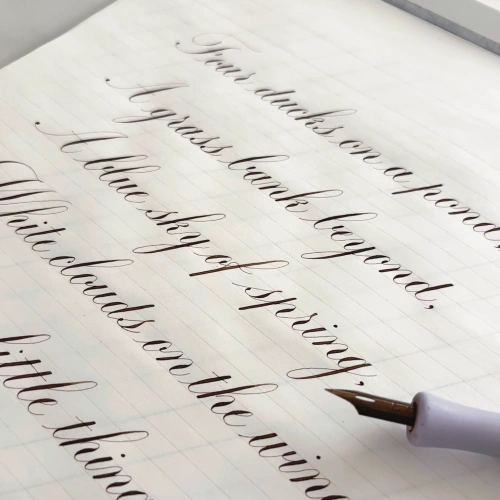 Four ducks on a pond,
A grass bank beyond,
A blue sky of spring,
White clouds on the wing
little thing